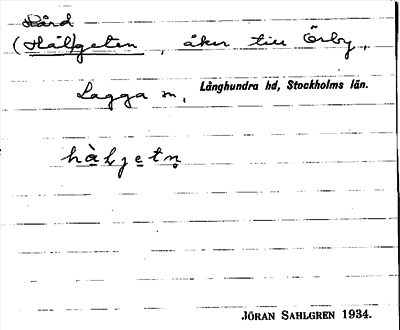 Hård
(Hål)geten, åker till Örby,
Lagga sn, Långhundra hd, Stockholms län.
hàljetn̥
JÖRAN SAHLGREN 1934.